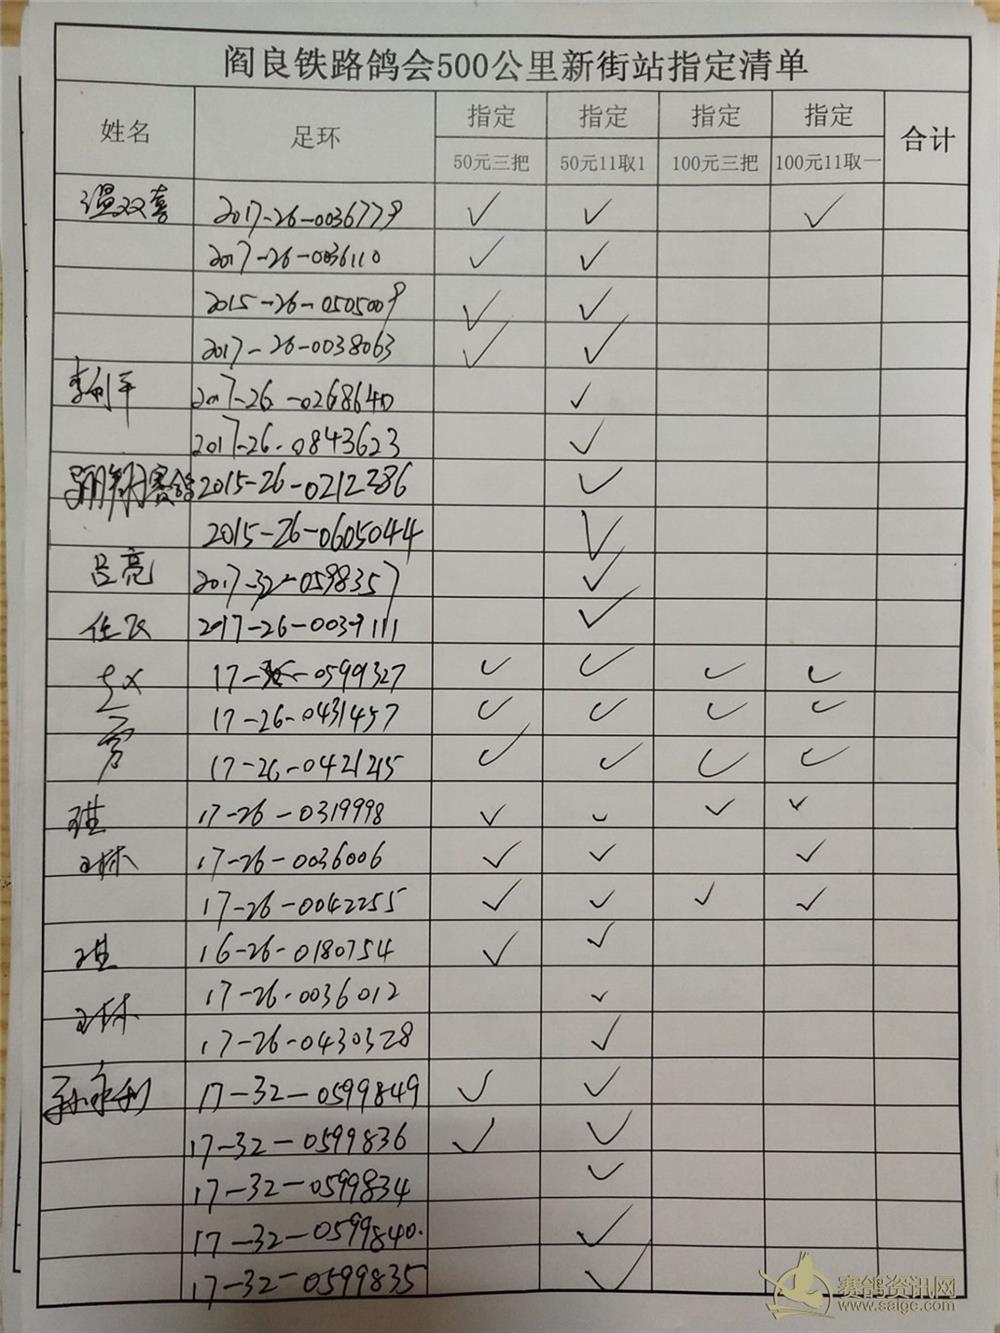 阎良铁路鸽会500公里新街站指定清单
姓名 足环 指定 指定 指定 指定 合计
50元三把 50元11取1 100元三把 100元11取一
温双喜 2017-26-0036779 ✓ ✓ ✓
2017-26-0036110 ✓ ✓
2015-26-0505009 ✓ ✓
2017-26-0038063 ✓ ✓
李利平 2017-26-0268640 ✓
2017-26-0843623 ✓
翔翔赛鸽 2015-26-0212386 ✓
2015-26-0605044 ✓
吕亮 2017-32-0598357 ✓
任民 2017-26-0039111 ✓
赵 17-26-0599327 ✓ ✓ ✓ ✓
17-26-0431457 ✓ ✓ ✓ ✓
17-26-0421215 ✓ ✓ ✓ ✓
17-26-0319998 ✓ ✓ ✓ ✓
17-26-0036006 ✓ ✓ ✓
17-26-0042255 ✓ ✓ ✓ ✓
16-26-0180754 ✓ ✓
17-26-0036012 ✓
17-26-0430328 ✓
孙永利 17-32-0599849 ✓ ✓
17-32-0599836 ✓ ✓
17-32-0599834 ✓
17-32-0599840. ✓
17-32-0599835 ✓
赛鸽资讯网
www.saigc.com